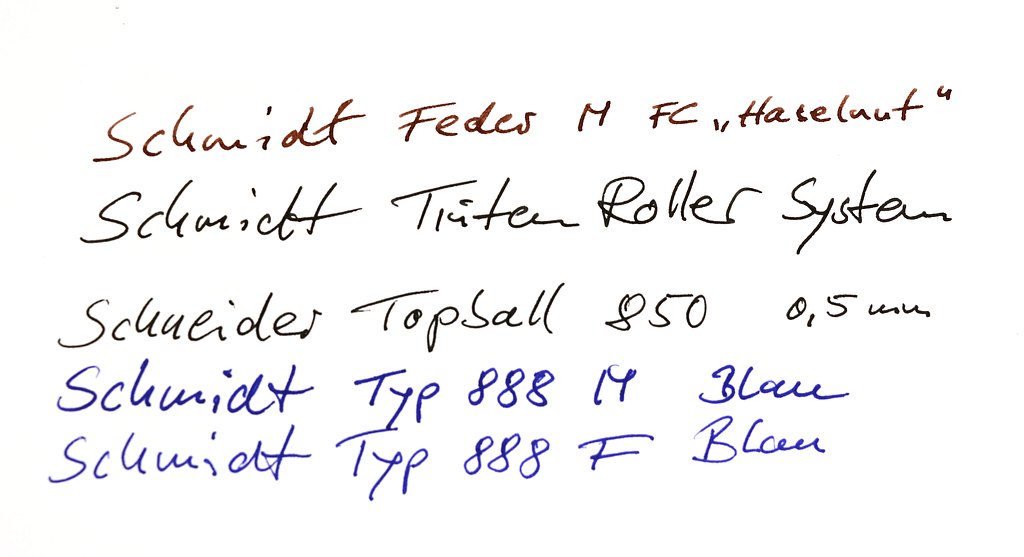 Schmidt Feder M FC „Haselnut“
Schmidt Tinten Roller System
Schneider Topball 850 0,5 mm
Schmidt Typ 888 M Blau
Schmidt Typ 888 F Blau